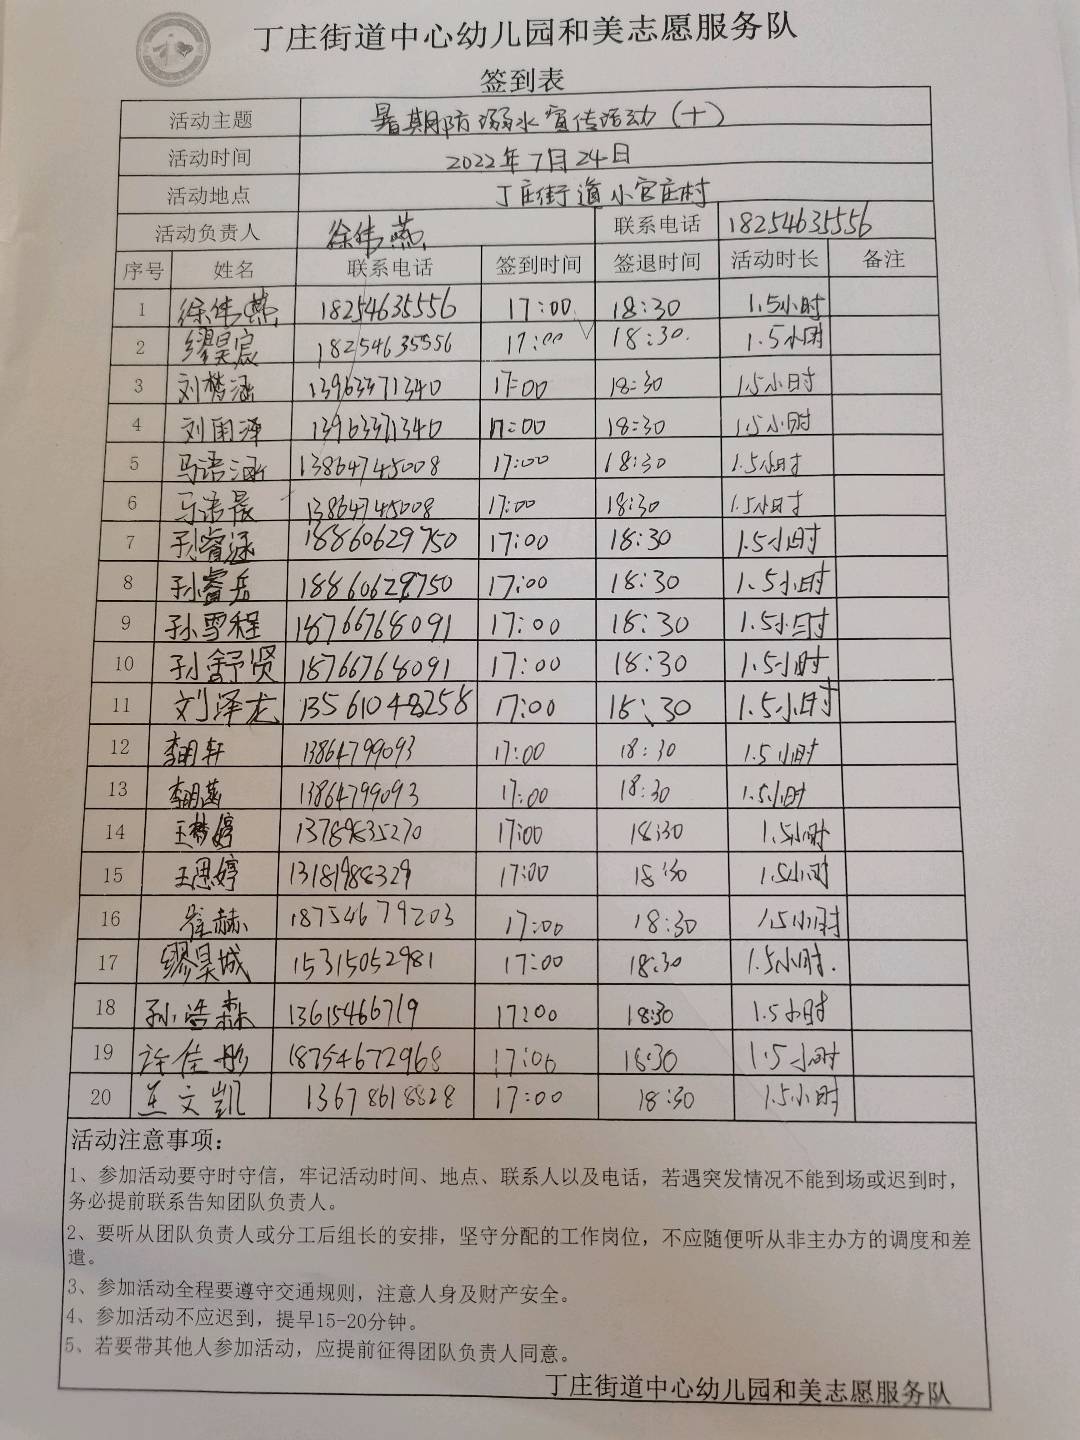 丁庄街道中心幼儿园和美志愿服务队
签到表
活动主题 暑期防溺水宣传活动（十）
活动时间 2022年7月24日
活动地点 丁庄街道小官庄村
活动负责人 徐伟燕 联系电话 18254635556
序号 姓名 联系电话 签到时间 签退时间 活动时长 备注
1 徐伟燕 18254635556 17:00 18:30 1.5小时
2 缪昊宸 18254635556 17:00 18:30 1.5小时
3 刘梦涵 13963371340 17:00 18:30 1.5小时
4 刘雨泽 13963371340 17:00 18:30 1.5小时
5 马语涵 13864745008 17:00 18:30 1.5小时
6 马语晨 13864745008 17:00 18:30 1.5小时
7 孙睿涵 18860629750 17:00 18:30 1.5小时
8 孙睿岳 18860629750 17:00 18:30 1.5小时
9 孙雪程 18766768091 17:00 18:30 1.5小时
10 孙舒贤 18766768091 17:00 18:30 1.5小时
11 刘泽龙 13561048258 17:00 18:30 1.5小时
12 李明轩 13864799093 17:00 18:30 1.5小时
13 李明菡 13864799093 17:00 18:30 1.5小时
14 王梦婷 13789835270 17:00 18:30 1.5小时
15 王思婷 13181988329 17:00 18:30 1.5小时
16 崔赫 18754679203 17:00 18:30 1.5小时
17 缪昊城 15315052981 17:00 18:30 1.5小时.
18 孙浩森 13615466719 17:00 18:30 1.5小时
19 许佳彤 18754672968 17:00 18:30 1.5小时
20 文凯 13678618828 17:00 18:30 1.5小时
活动注意事项：
1、参加活动要守时守信，牢记活动时间、地点、联系人以及电话，若遇突发情况不能到场或迟到时，
务必提前联系告知团队负责人。
2、要听从团队负责人或分工后组长的安排，坚守分配的工作岗位，不应随便听从非主办方的调度和差
遣。
3、参加活动全程要遵守交通规则，注意人身及财产安全。
4、参加活动不应迟到，提早15-20分钟。
5、若要带其他人参加活动，应提前征得团队负责人同意。
丁庄街道中心幼儿园和美志愿服务队